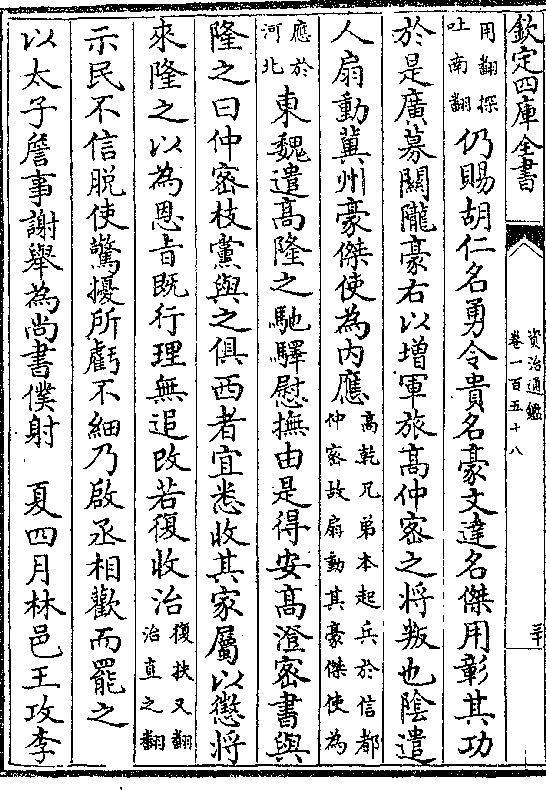 欽定四庫全書
資治通鑑
卷一百五十八
三十
用翻探
吐南翻
仍賜胡仁名勇令貴名豪文達名傑用彰其功
於是廣募關隴豪右以增軍旅高仲密之將叛也陰遣
人扇動冀州豪傑使為内應
高乾兄弟本起兵於信都
仲密故扇動其豪傑使為
應於
河北
東魏遣高隆之馳驛慰撫由是得安高澄密書與
隆之曰仲密枝黨與之俱西者宜悉收其家屬以懲將
來隆之以為恩旨既行理無追改若復收治
復扶又翻
治直之翻
示民不信脱使驚擾所虧不細乃啟丞相歡而罷之
以太子詹事謝舉為尚書僕射　夏四月林邑王攻李